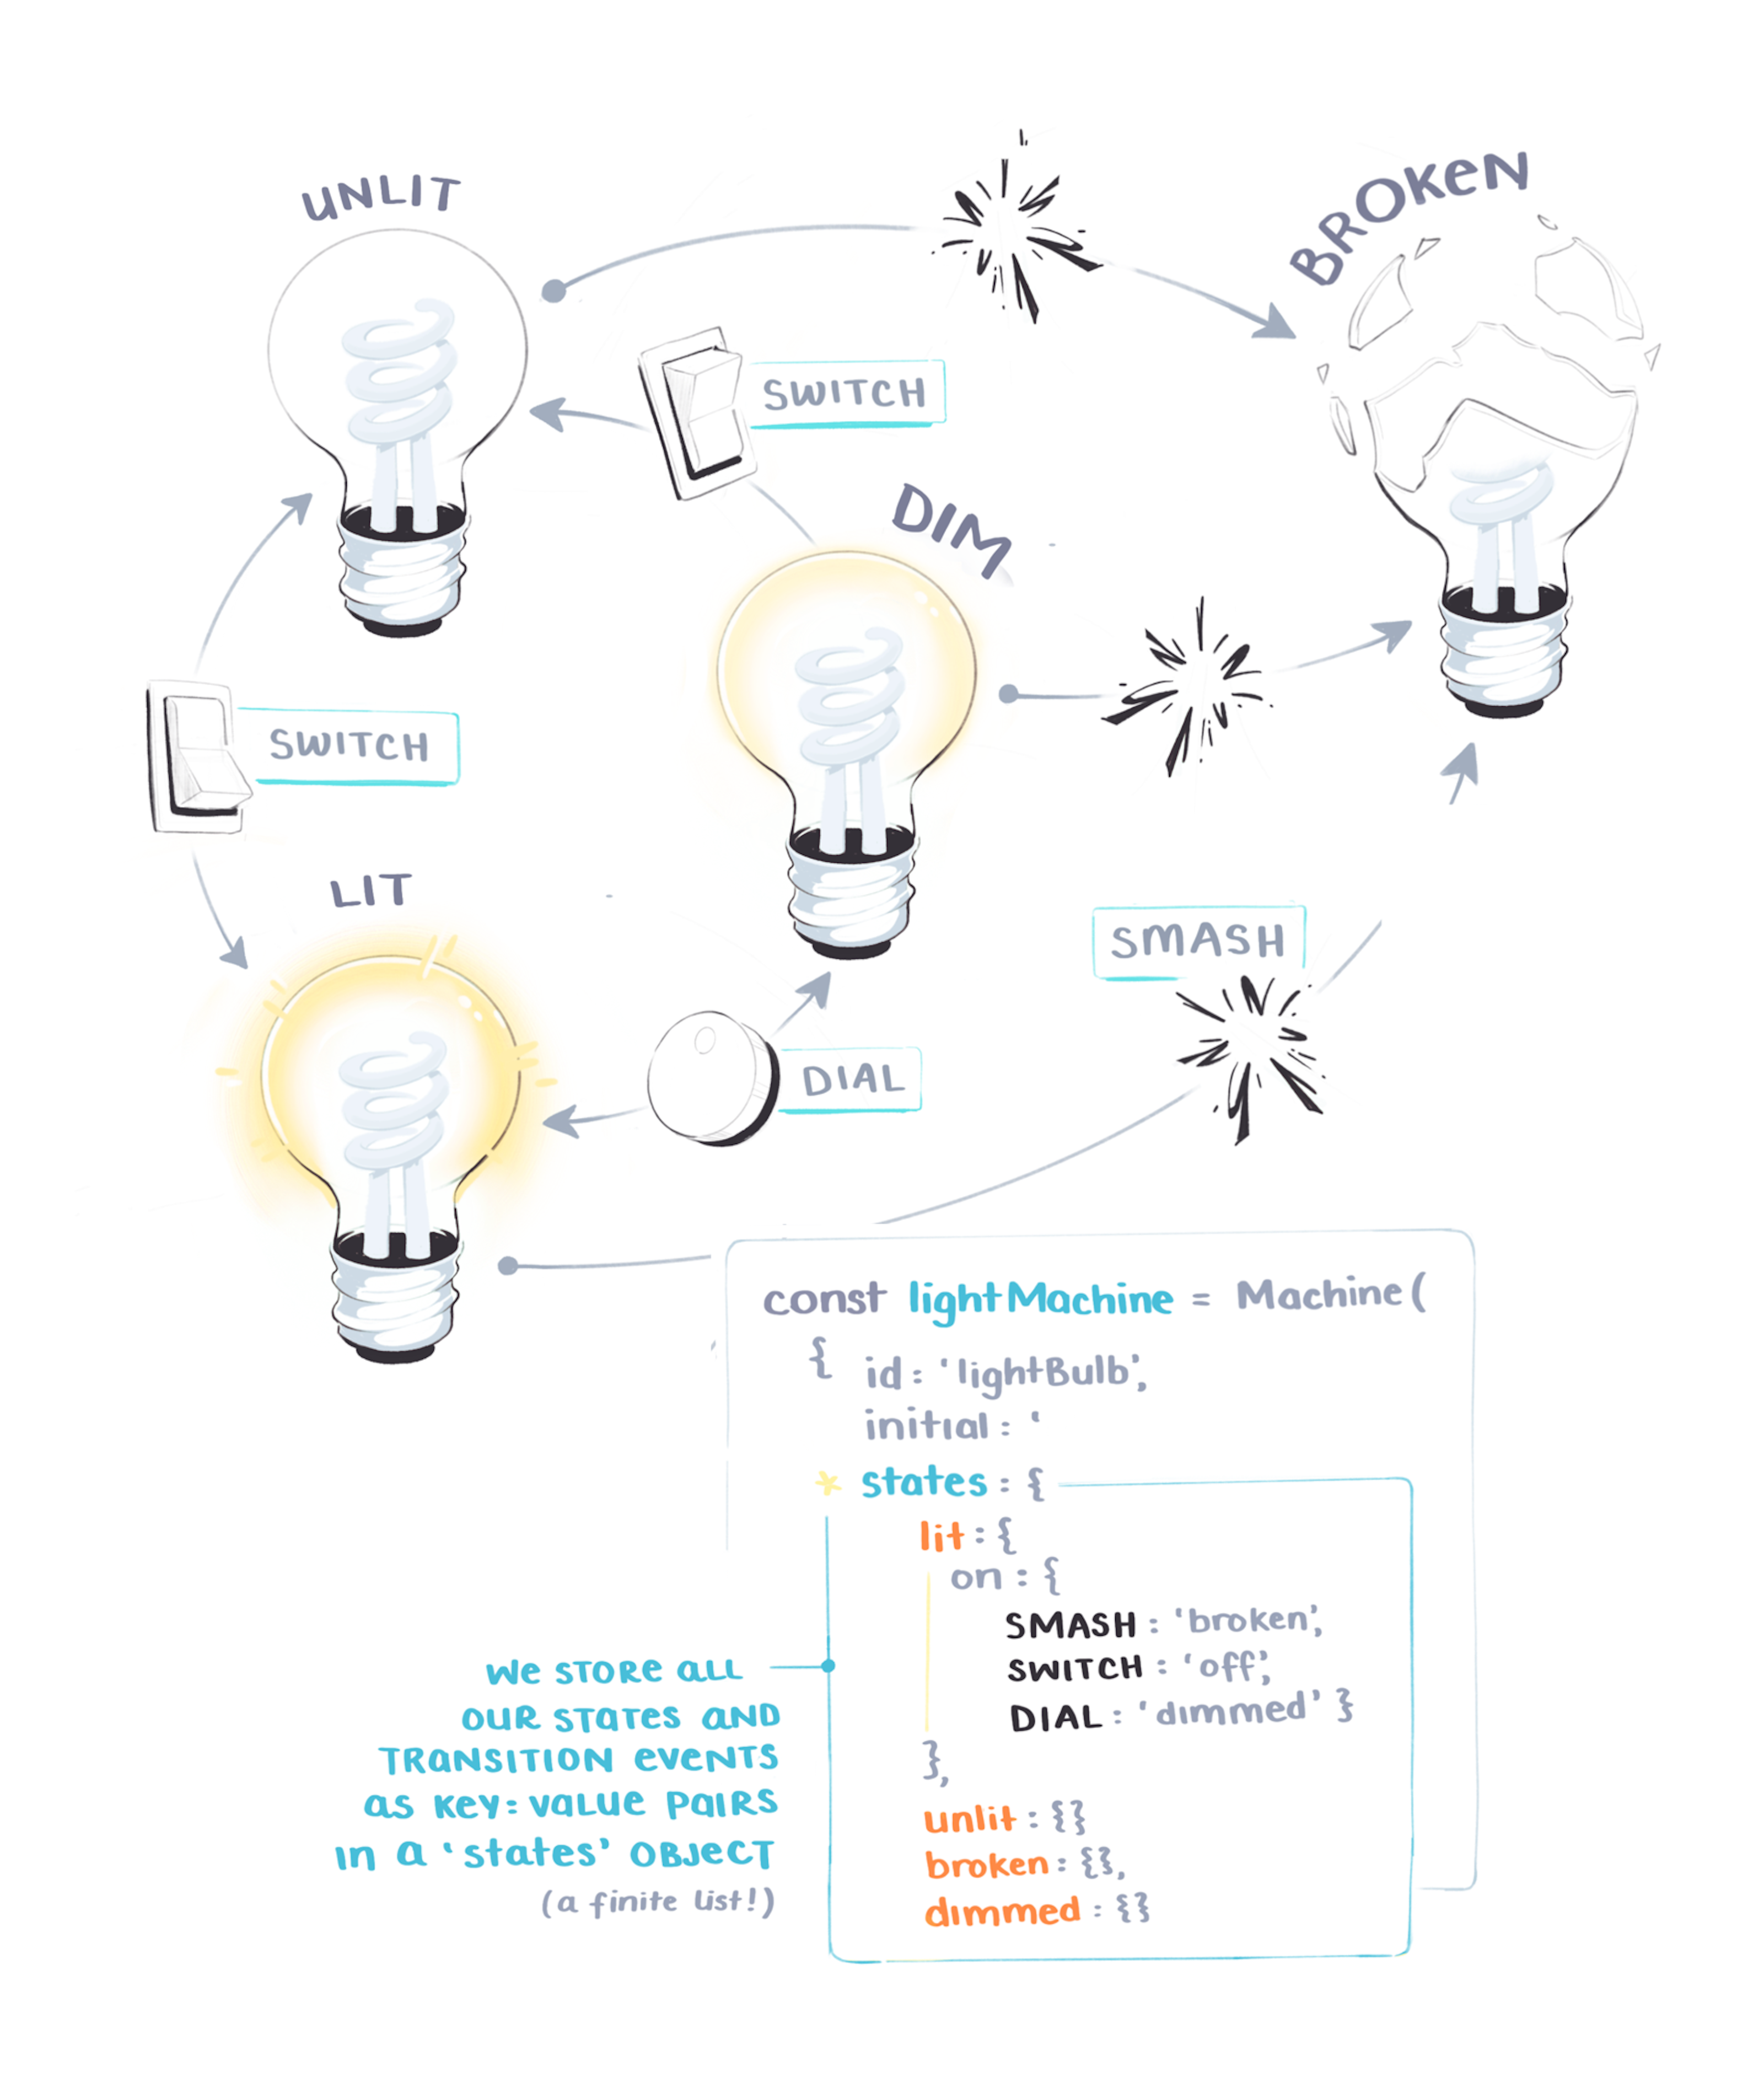 UNLIT
BROKEN
SWITCH
DIM
SWITCH
LIT
SMASH
DIAL
const lightMachine = Machine(
{ id: 'lightBulb',
initial: '
* states: {
lit: {
on: {
SMASH: 'broken',
SWITCH: 'off',
DIAL: 'dimmed' }
},
unlit: {}
broken: {},
dimmed: {}
We STORE ALL
OUR STATES AND
TRANSITION EVENTS
AS KEY: VALUE PAIRS
IN A 'states' OBJECT
(a finite list!)